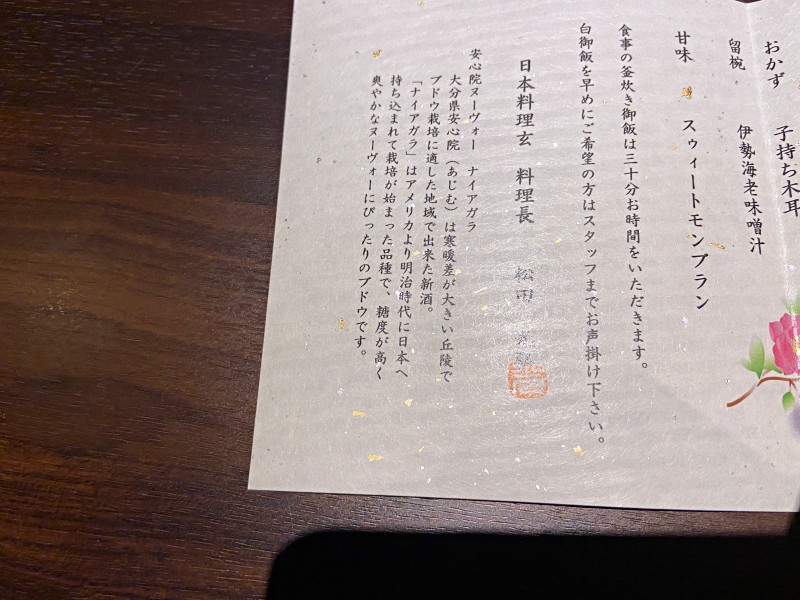 おかず 子持ち木耳
留椀 伊勢海老味噌汁
甘味 スウィートモンブラン
食事の釜炊き御飯は三十分お時間をいただきます。
白御飯を早めにご希望の方はスタッフまでお声掛け下さい。
日本料理玄 料理長 松田
安心院ヌーヴォー ナイアガラ
大分県安心院（あじむ）は寒暖差が大きい丘陵で
ブドウ栽培に適した地域で出来た新酒。
「ナイアガラ」はアメリカより明治時代に日本へ
持ち込まれて栽培が始まった品種で、糖度が高く
爽やかなヌーヴォーにぴったりのブドウです。